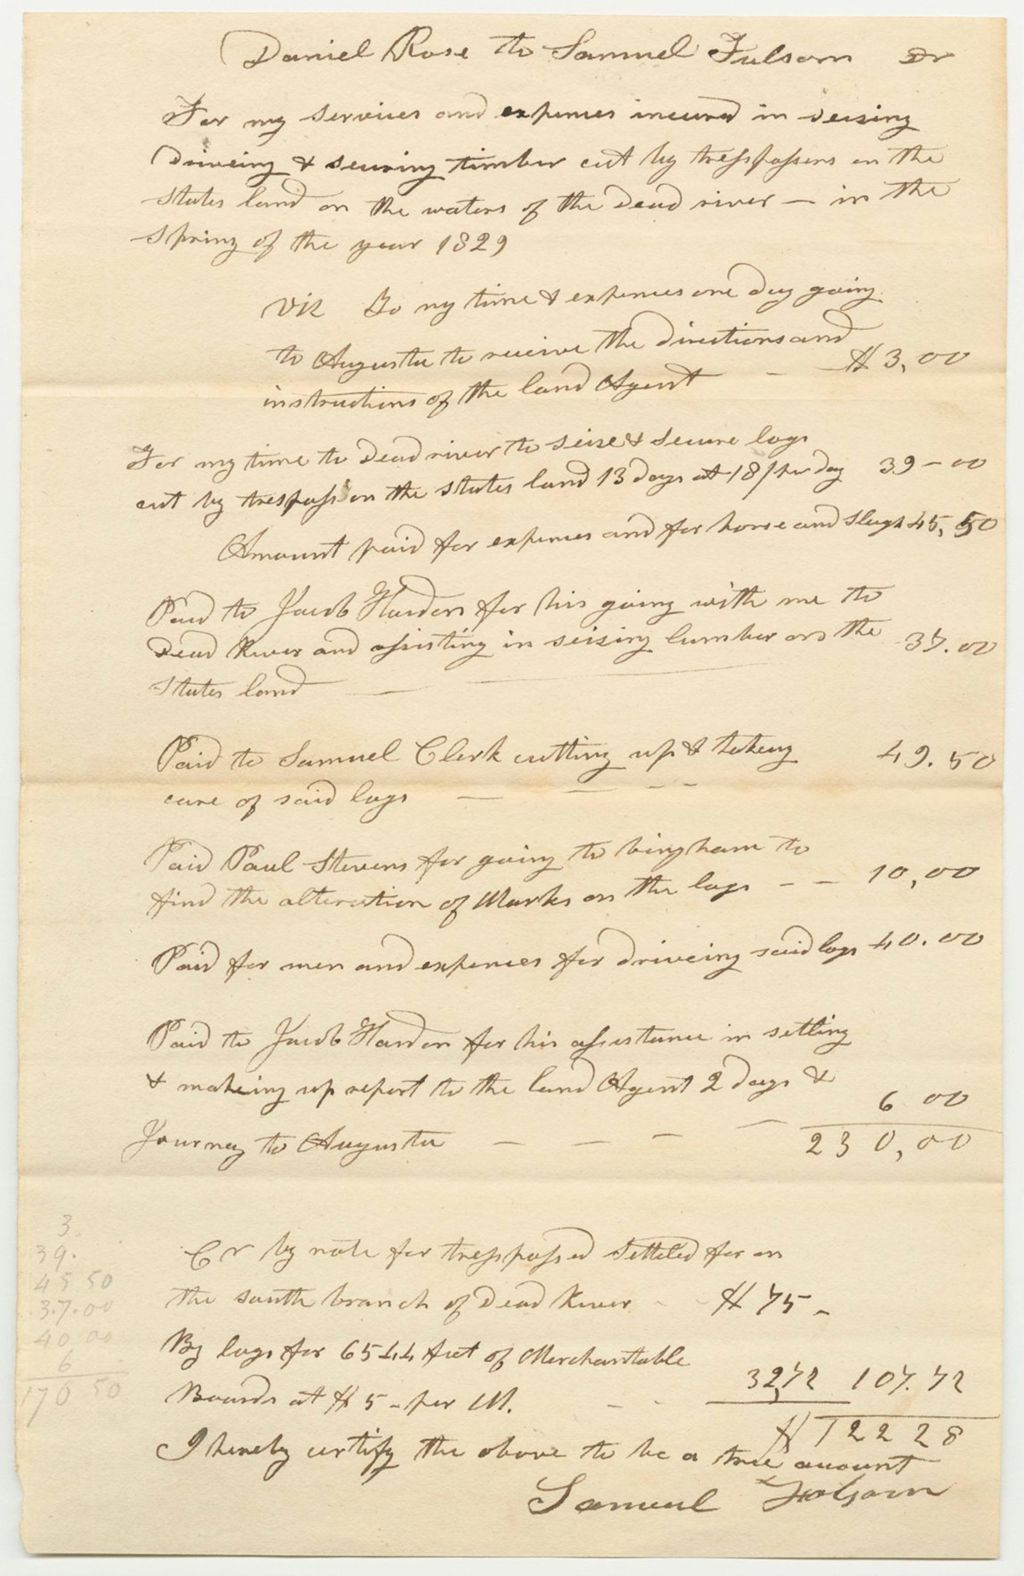 Daniel Rose to Samuel Fulsom Dr
For my services and expenses incured in seizing
Driveing & securing timber cut by tresspassers on the
States land on the waters of the Dead river — in the
Spring of the year 1829
Viz To my time & expenses one day going
to Augusta to receive the directions and
instructions of the land Agent - - $3,00
For my time to Dead river to seize & secure logs
cut by tresspass on the States land 13 days at 18/ per day 39-00
Amount paid for expenses and for horse and Slagh 45,50
Paid to Jacob Harden for his going with me to
Dead River and assisting in seizing lumber on the 37.00
States land —
Paid to Samuel Clerk cutting up & takeing 49.50
care of said logs — — - -
Paid Paul Stevens for going to bingham to
find the alteration of Marks on the logs - - 10,00
Paid for men and expenses for driveing said logs 40.00
Paid to Jacob Harden for his assistance in setling
& makeing up report to the land Agent 2 days & 6 00
Journey to Augusta — — — — 230,00
3.
39.
45 50
3.7.00
40 00
6
170 50
Cr by note for tresspassed Settled for on
the south branch of Dead River - - $75-
By logs for 6544 feet of Merchantable
Boards at $5- per M. - - 32,72 107.72
$122 28
I hereby certify the above to be a true account
Samuel Folsom